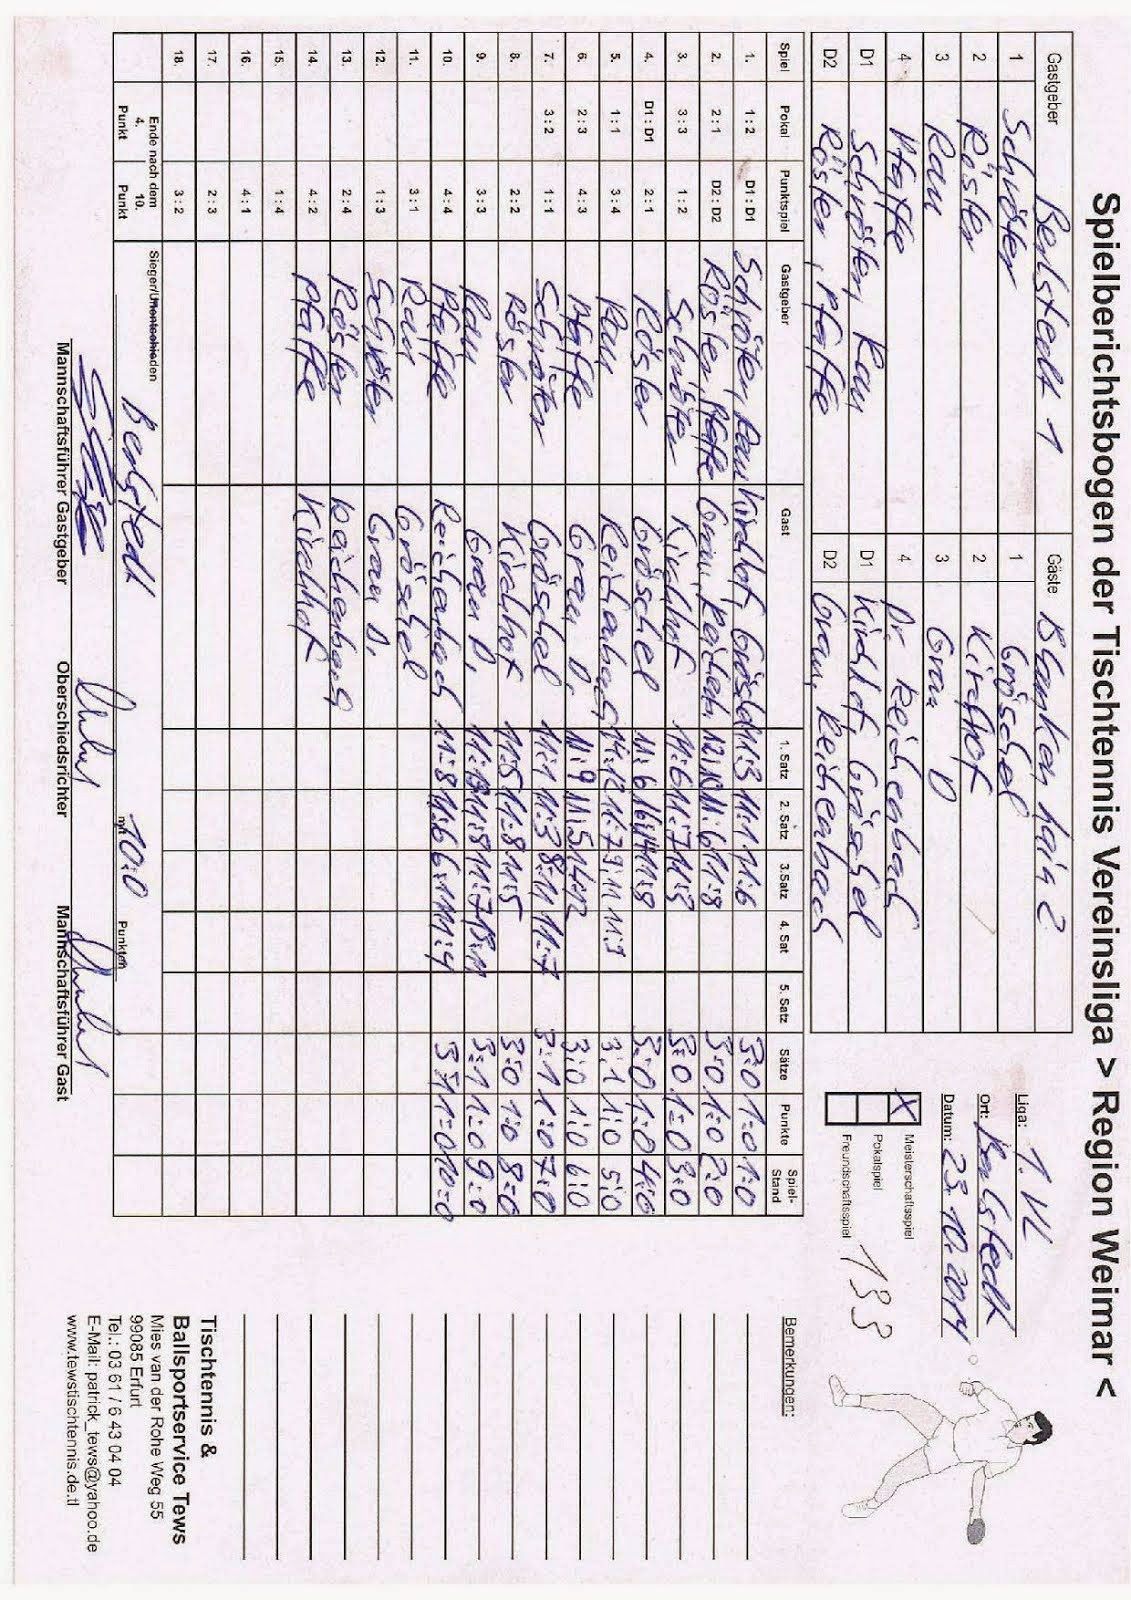 Spielberichtsbogen der Tischtennis Vereinsliga > Region Weimar <
Gastgeber Berlstedt 1 Gäste Blankenhain 2
1 Schröter 1 Gröschel
2 Röster 2 Kirchhof
3 Rau 3 Grau D
4 Pfaffe 4 Dr. Reichenbach
D1 Schröter, Rau D1 Kirchhof, Gröschel
D2 Röster, Pfaffe D2 Grau, Reichenbach
Liga: 1. VL
Ort: Berlstedt
Datum: 23.10.2014
X Meisterschaftsspiel
Pokalspiel
Freundschaftsspiel
133
Spiel Pokal Punktspiel Gastgeber Gast 1. Satz 2. Satz 3.Satz 4. Sat 5. Satz Sätze Punkte Spiel-Stand
1. 1 : 2 D1 : D1 Schröter, Rau Kirchhof, Gröschel 11:3 11:1 11:6 3:0 1:0 1:0
2. 2 : 1 D2 : D2 Röster, Pfaffe Grau, Reichenb. 12:10 11:6 11:8 3:0 1:0 2:0
3. 3 : 3 1 : 2 Schröter Kirchhof 11:6 11:7 11:8 3:0 1:0 3:0
4. D1 : D1 2 : 1 Röster Gröschel 11:6 16:14 11:8 3:0 1:0 4:0
5. 1 : 1 3 : 4 Rau Reichenbach 14:12 11:7 9:11 11:9 3:1 1:0 5:0
6. 2 : 3 4 : 3 Pfaffe Grau D. 11:9 11:5 14:12 3:0 1:0 6:0
7. 3 : 2 1 : 1 Schröter Gröschel 11:1 11:3 8:11 11:7 3:1 1:0 7:0
8. 2 : 2 Röster Kirchhof 11:5 11:8 11:5 3:0 1:0 8:0
9. 3 : 3 Rau Grau D. 11:8 11:7 13:11 3:1 1:0 9:0
10. 4 : 4 Pfaffe Reichenbach 11:8 11:6 6:11 11:4 3:1 1:0 10:0
11. 3 : 1 Rau Gröschel
12. 1 : 3 Schröter Grau D.
13. 2 : 4 Röster Reichenbach
14. 4 : 2 Pfaffe Kirchhof
15. 1 : 4
16. 4 : 1
17. 2 : 3
18. 3 : 2
Ende nach dem
4. 10.
Punkt Punkt
Sieger/Unentschieden Berlstedt mit 10:0 Punkten
Mannschaftsführer Gastgeber Oberschiedsrichter Mannschaftsführer Gast
Bemerkungen:
Tischtennis &
Ballsportservice Tews
Mies van der Rohe Weg 55
99085 Erfurt
Tel.: 03 61 / 6 43 04 04
E-Mail: patrick_tews@yahoo.de
www.tewstischtennis.de.tl